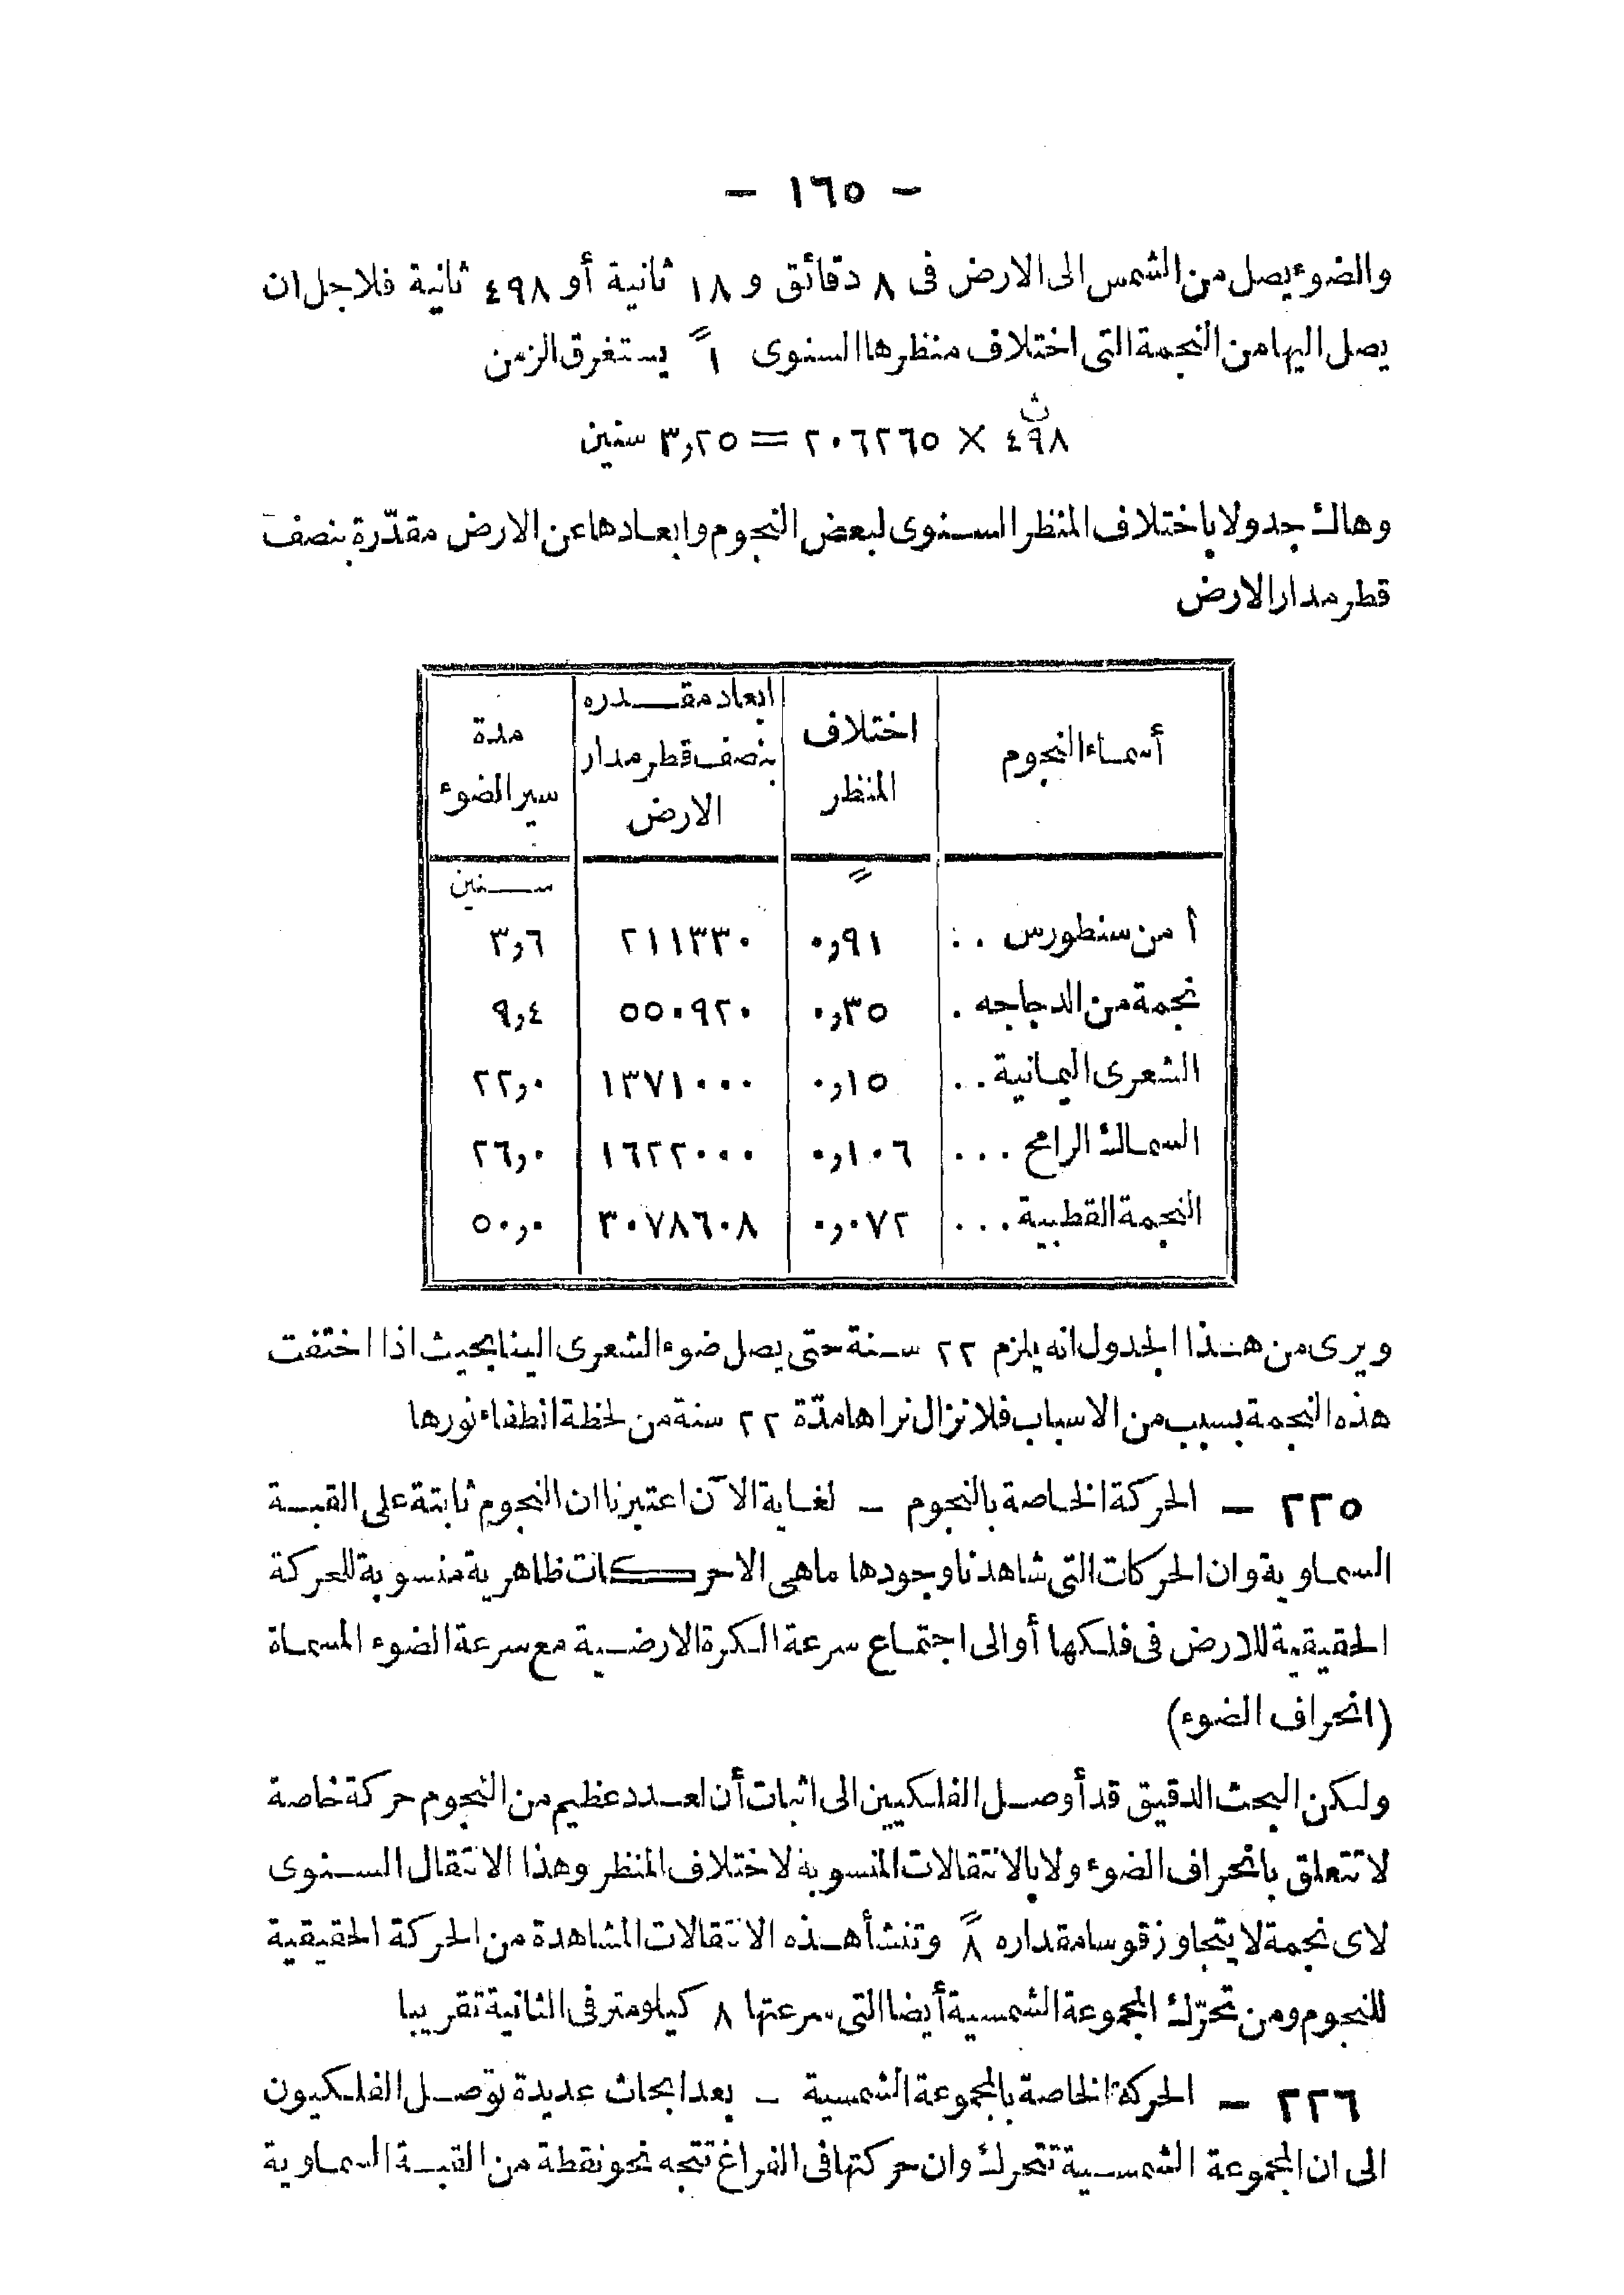 - ١٦٥ -
والضوء يصل من الشمس الى الارض فى ٨ دقائق و ١٨ ثانية أو ٤٩٨ ثانية فلاجل ان
يصل اليها من النجمة التى اختلاف منظرها السنوى ١ً يستغرق الزمن
ث
٤٩٨ × ٢٠٦٢٦٥ = ٣,٢٥ سنين
وهاك جدولا باختلاف المنظر السنوى لبعض النجوم وابعادها عن الارض مقدّرة بنصف
قطر مدار الارض
أسماء النجوم | اختلاف المنظر | ابعاد مقدره بنصف قطر مدار الارض | مدة سير الضوء
ً | سنين
أ من سنطورس .. | ٠,٩١ | ٢١١٣٣٠ | ٣,٦
نجمة من الدجاجه . | ٠,٣٥ | ٥٥٠٩٢٠ | ٩,٤
الشعرى اليمانية .. | ٠,١٥ | ١٣٧١٠٠٠ | ٢٢,٠
السماك الرامح ... | ٠,١٠٦ | ١٦٢٢٠٠٠ | ٢٦,٠
النجمة القطبية ... | ٠,٠٧٢ | ٣٠٧٨٦٠٨ | ٥٠,٠
ويرى من هذا الجدول انه يلزم ٢٢ سنة حتى يصل ضوء الشعرى الينا بحيث اذا اختفت
هذه النجمة بسبب من الاسباب فلا نزال نراها مدّة ٢٢ سنة من لحظة انطفاء نورها
٢٢٥ - الحركة الخاصة بالنجوم - لغاية الآن اعتبرنا ان النجوم ثابتة على القبة
السماوية وان الحركات التى شاهدنا وجودها ما هى الا حركات ظاهرية منسوبة للحركة
الحقيقية للارض فى فلكها أو الى اجتماع سرعة الكرة الارضية مع سرعة الضوء المسماة
(انحراف الضوء)
ولكن البحث الدقيق قد أوصل الفلكيين الى اثبات أن لعدد عظيم من النجوم حركة خاصة
لا تتعلق بانحراف الضوء ولا بالانتقالات المنسوبة لاختلاف المنظر وهذا الانتقال السنوى
لاى نجمة لا يتجاوز قوسا مقداره ٨ً وتنشأ هذه الانتقالات المشاهدة من الحركة الحقيقية
للنجوم ومن تحرّك المجموعة الشمسية أيضا التى سرعتها ٨ كيلومتر فى الثانية تقريبا
٢٢٦ - الحركة الخاصة بالمجموعة الشمسية - بعد ابحاث عديدة توصل الفلكيون
الى ان المجموعة الشمسية تتحرك وان حركتها فى الفراغ تتجه نحو نقطة من القبة السماوية